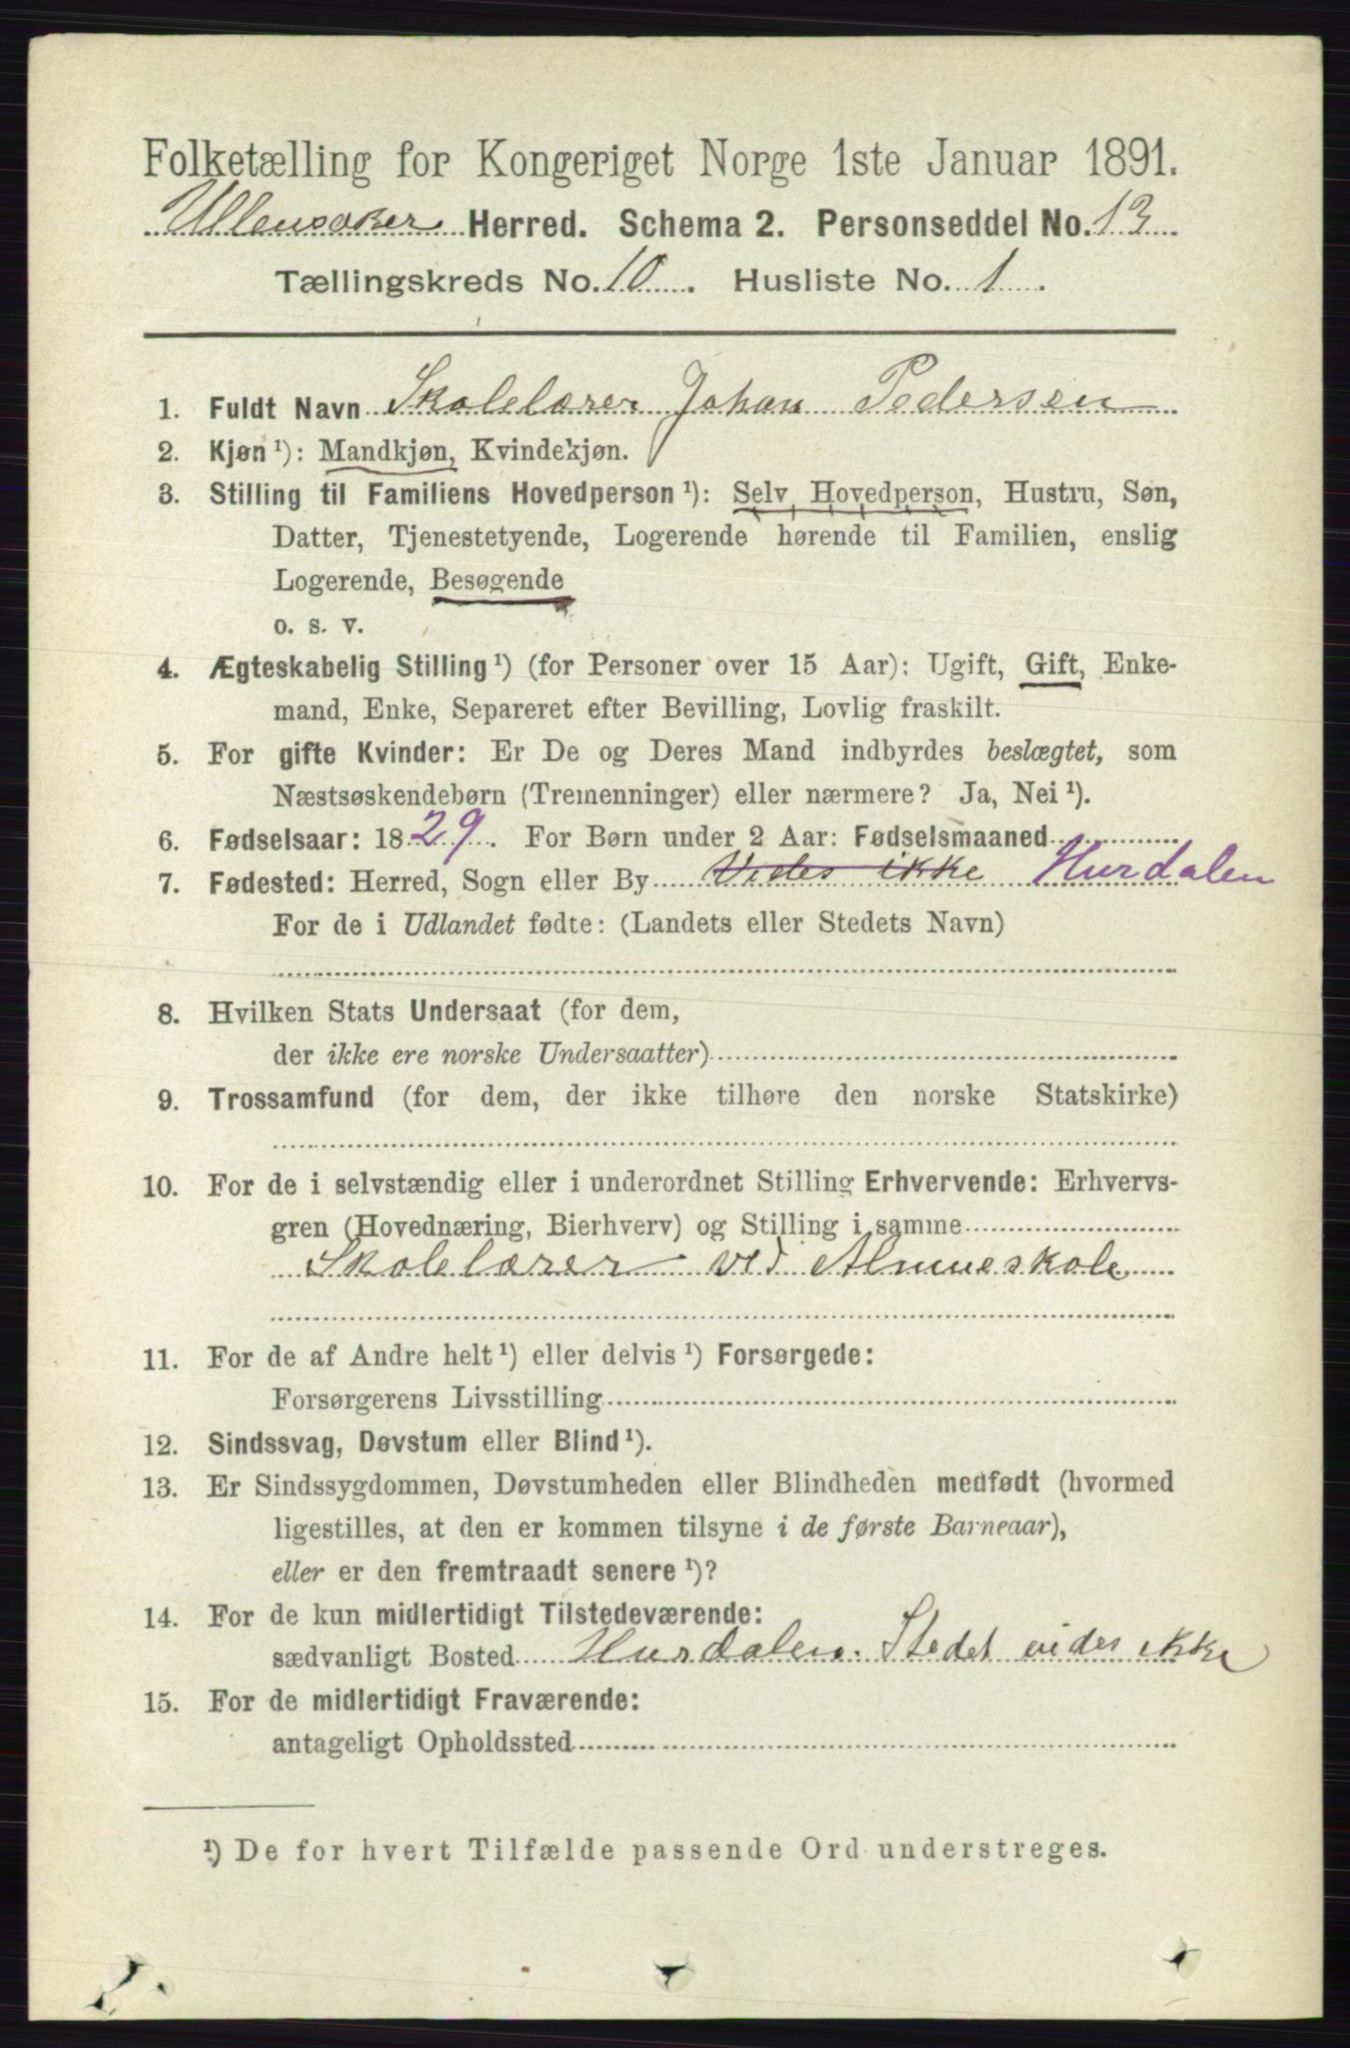 Folketælling for Kongeriget Norge 1ste Januar 1891.
Ullensaker Herred. Schema 2. Personseddel No. 13
Tællingskreds No. 10. Husliste No. 1.
1. Fuldt Navn Skolelærer Johan Pedersen
2. Kjøn ¹): Mandkjøn, Kvindekjøn.
3. Stilling til Familiens Hovedperson ¹): Selv Hovedperson, Hustru, Søn,
Datter, Tjenestetyende, Logerende hørende til Familien, enslig
Logerende, Besøgende
o. s. v.
4. Ægteskabelig Stilling ¹) (for Personer over 15 Aar): Ugift, Gift, Enke-
mand, Enke, Separeret efter Bevilling, Lovlig fraskilt.
5. For gifte Kvinder: Er De og Deres Mand indbyrdes beslægtet, som
Næstsøskendebørn (Tremenninger) eller nærmere? Ja, Nei ¹).
6. Fødselsaar: 1829. For Børn under 2 Aar: Fødselsmaaned
7. Fødested: Herred, Sogn eller By Vides ikke Hurdalen
For de i Udlandet fødte: (Landets eller Stedets Navn)
8. Hvilken Stats Undersaat (for dem,
der ikke ere norske Undersaatter)
9. Trossamfund (for dem, der ikke tilhøre den norske Statskirke)
10. For de i selvstændig eller i underordnet Stilling Erhvervende: Erhvervs-
gren (Hovednæring, Bierhverv) og Stilling i samme
Skolelærer ved Almueskole
11. For de af Andre helt ¹) eller delvis ¹) Forsørgede:
Forsørgerens Livsstilling
12. Sindssvag, Døvstum eller Blind ¹).
13. Er Sindssygdommen, Døvstumheden eller Blindheden medfødt (hvormed
ligestilles, at den er kommen tilsyne i de første Barneaar),
eller er den fremtraadt senere ¹)?
14. For de kun midlertidigt Tilstedeværende:
sædvanligt Bosted Hurdalen. Stedet vides ikke
15. For de midlertidigt Fraværende:
antageligt Opholdssted
¹) De for hvert Tilfælde passende Ord understreges.